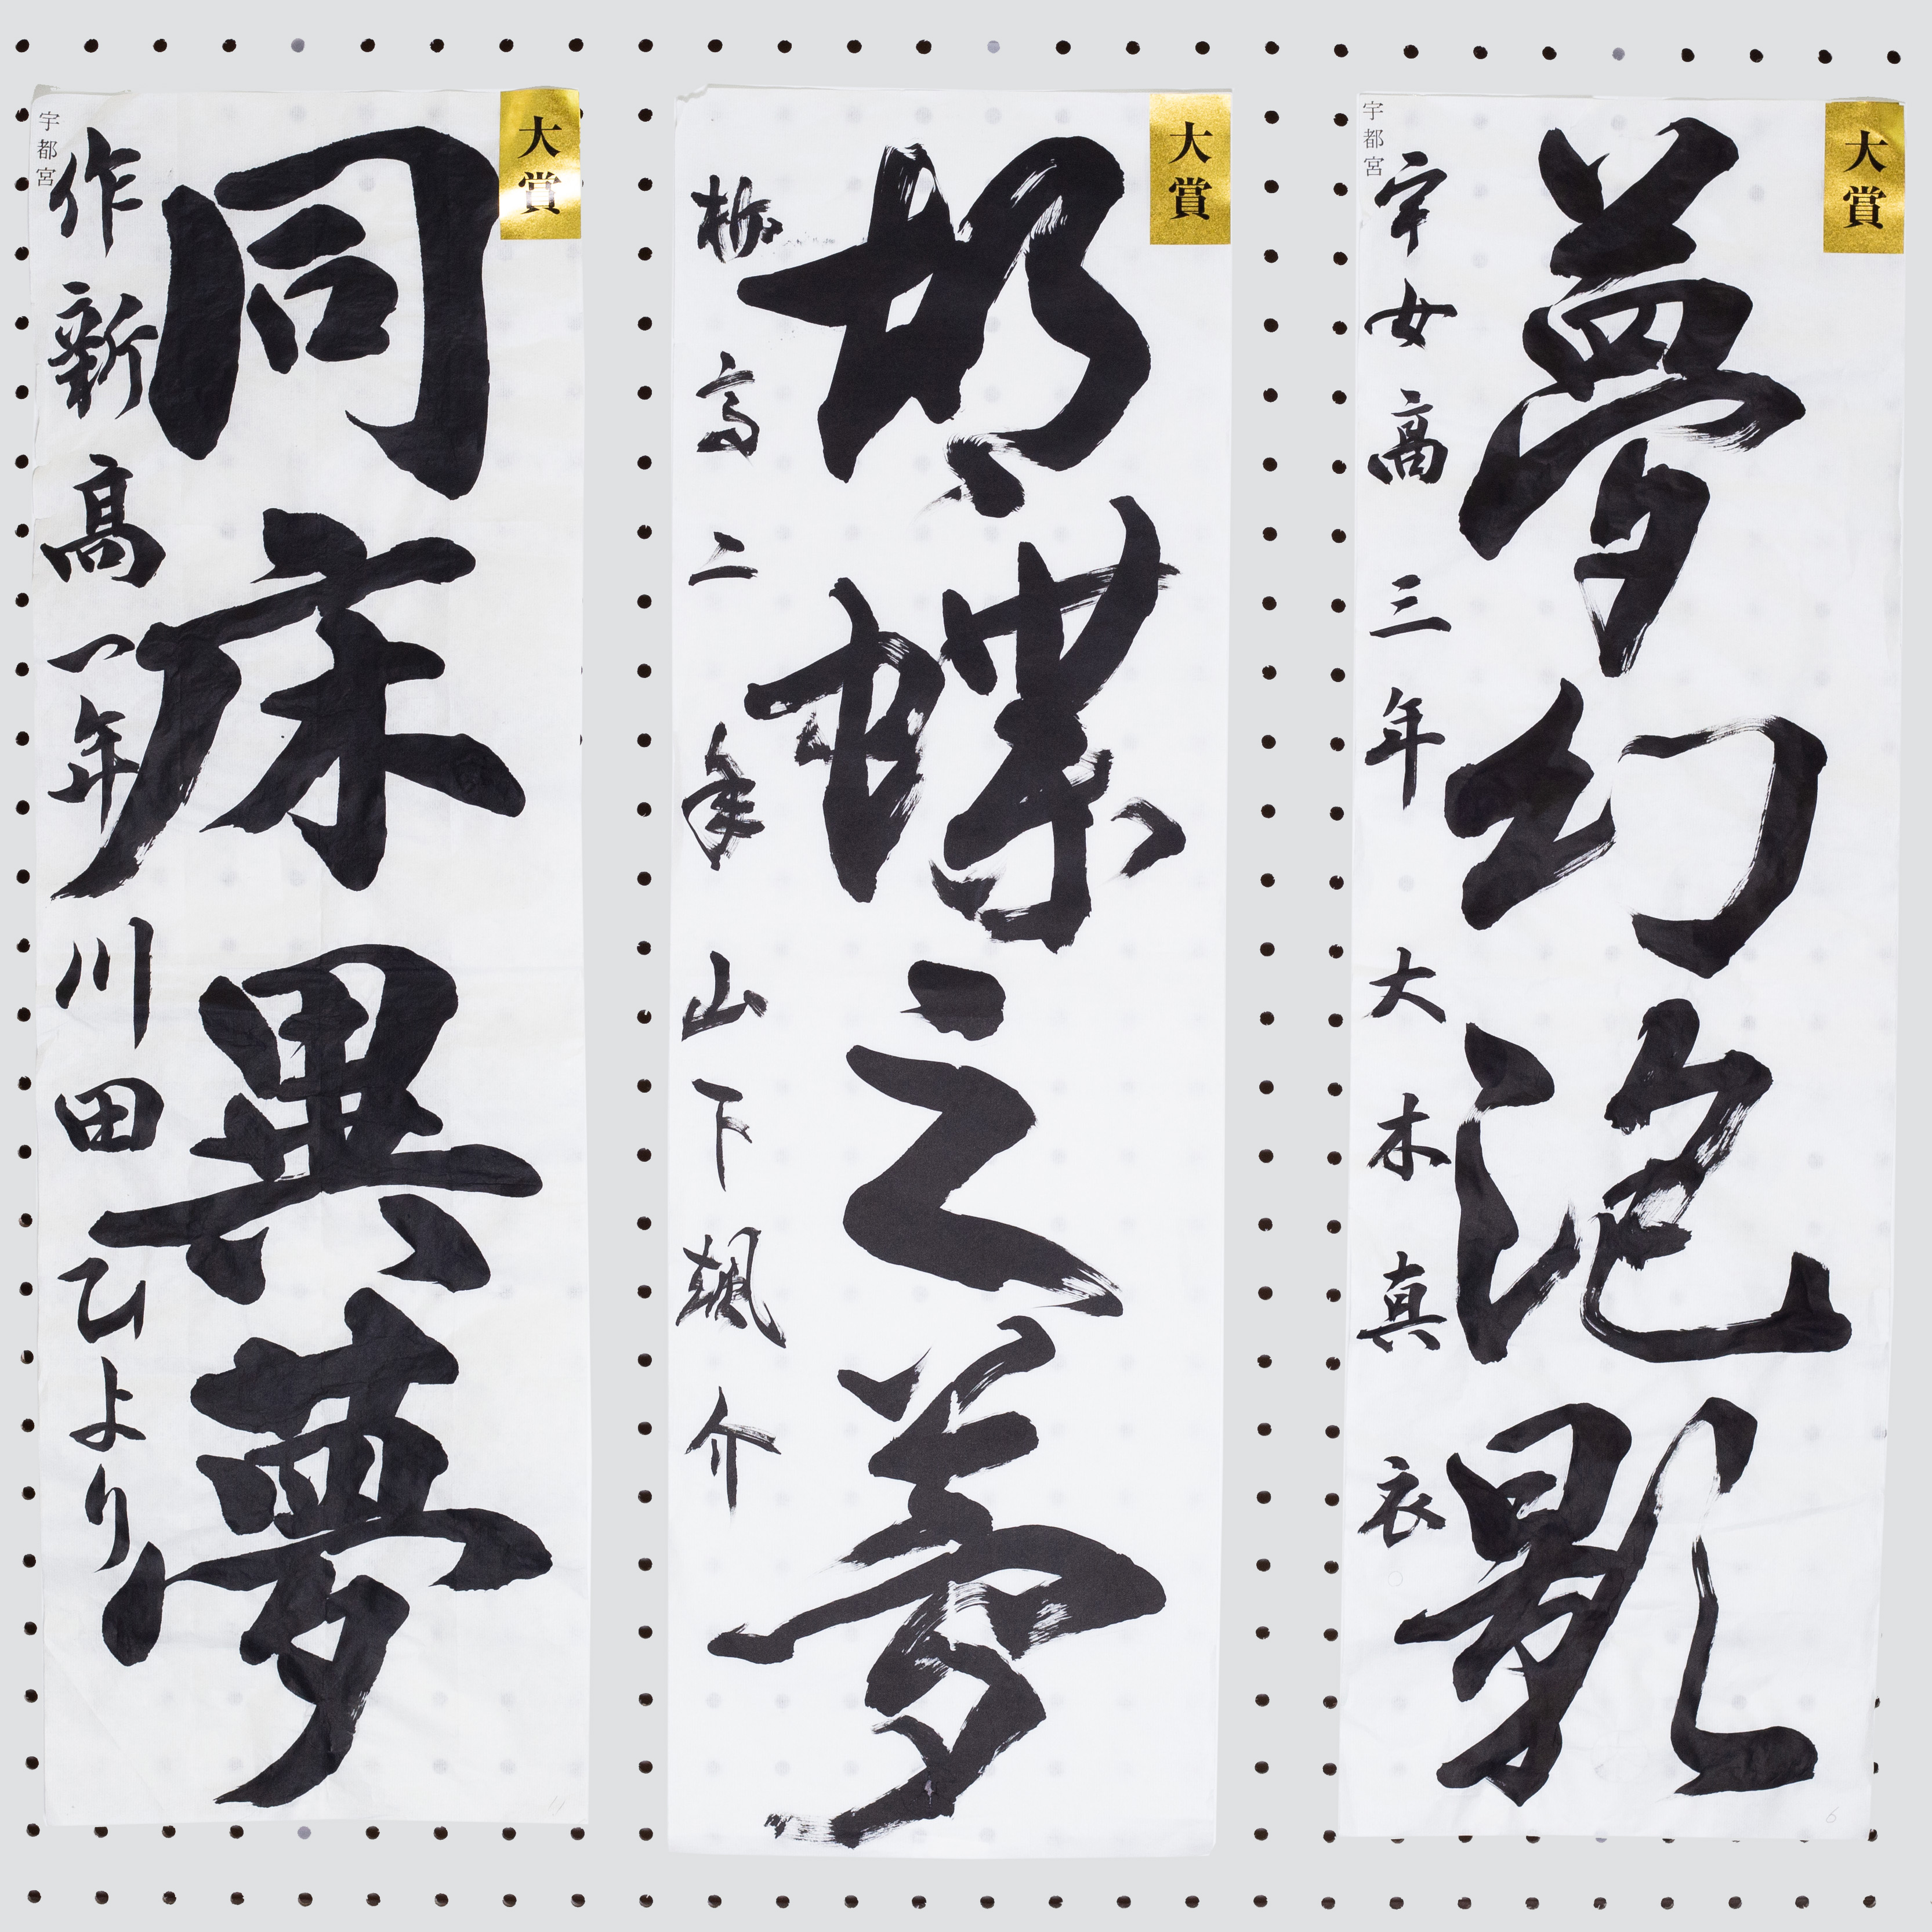 大賞
夢幻泡影
宇女高三年 大木真衣
宇都宮
大賞
胡蝶之夢
栃高二年 山下颯介
大賞
同床異夢
作新高一年 川田ひより
宇都宮